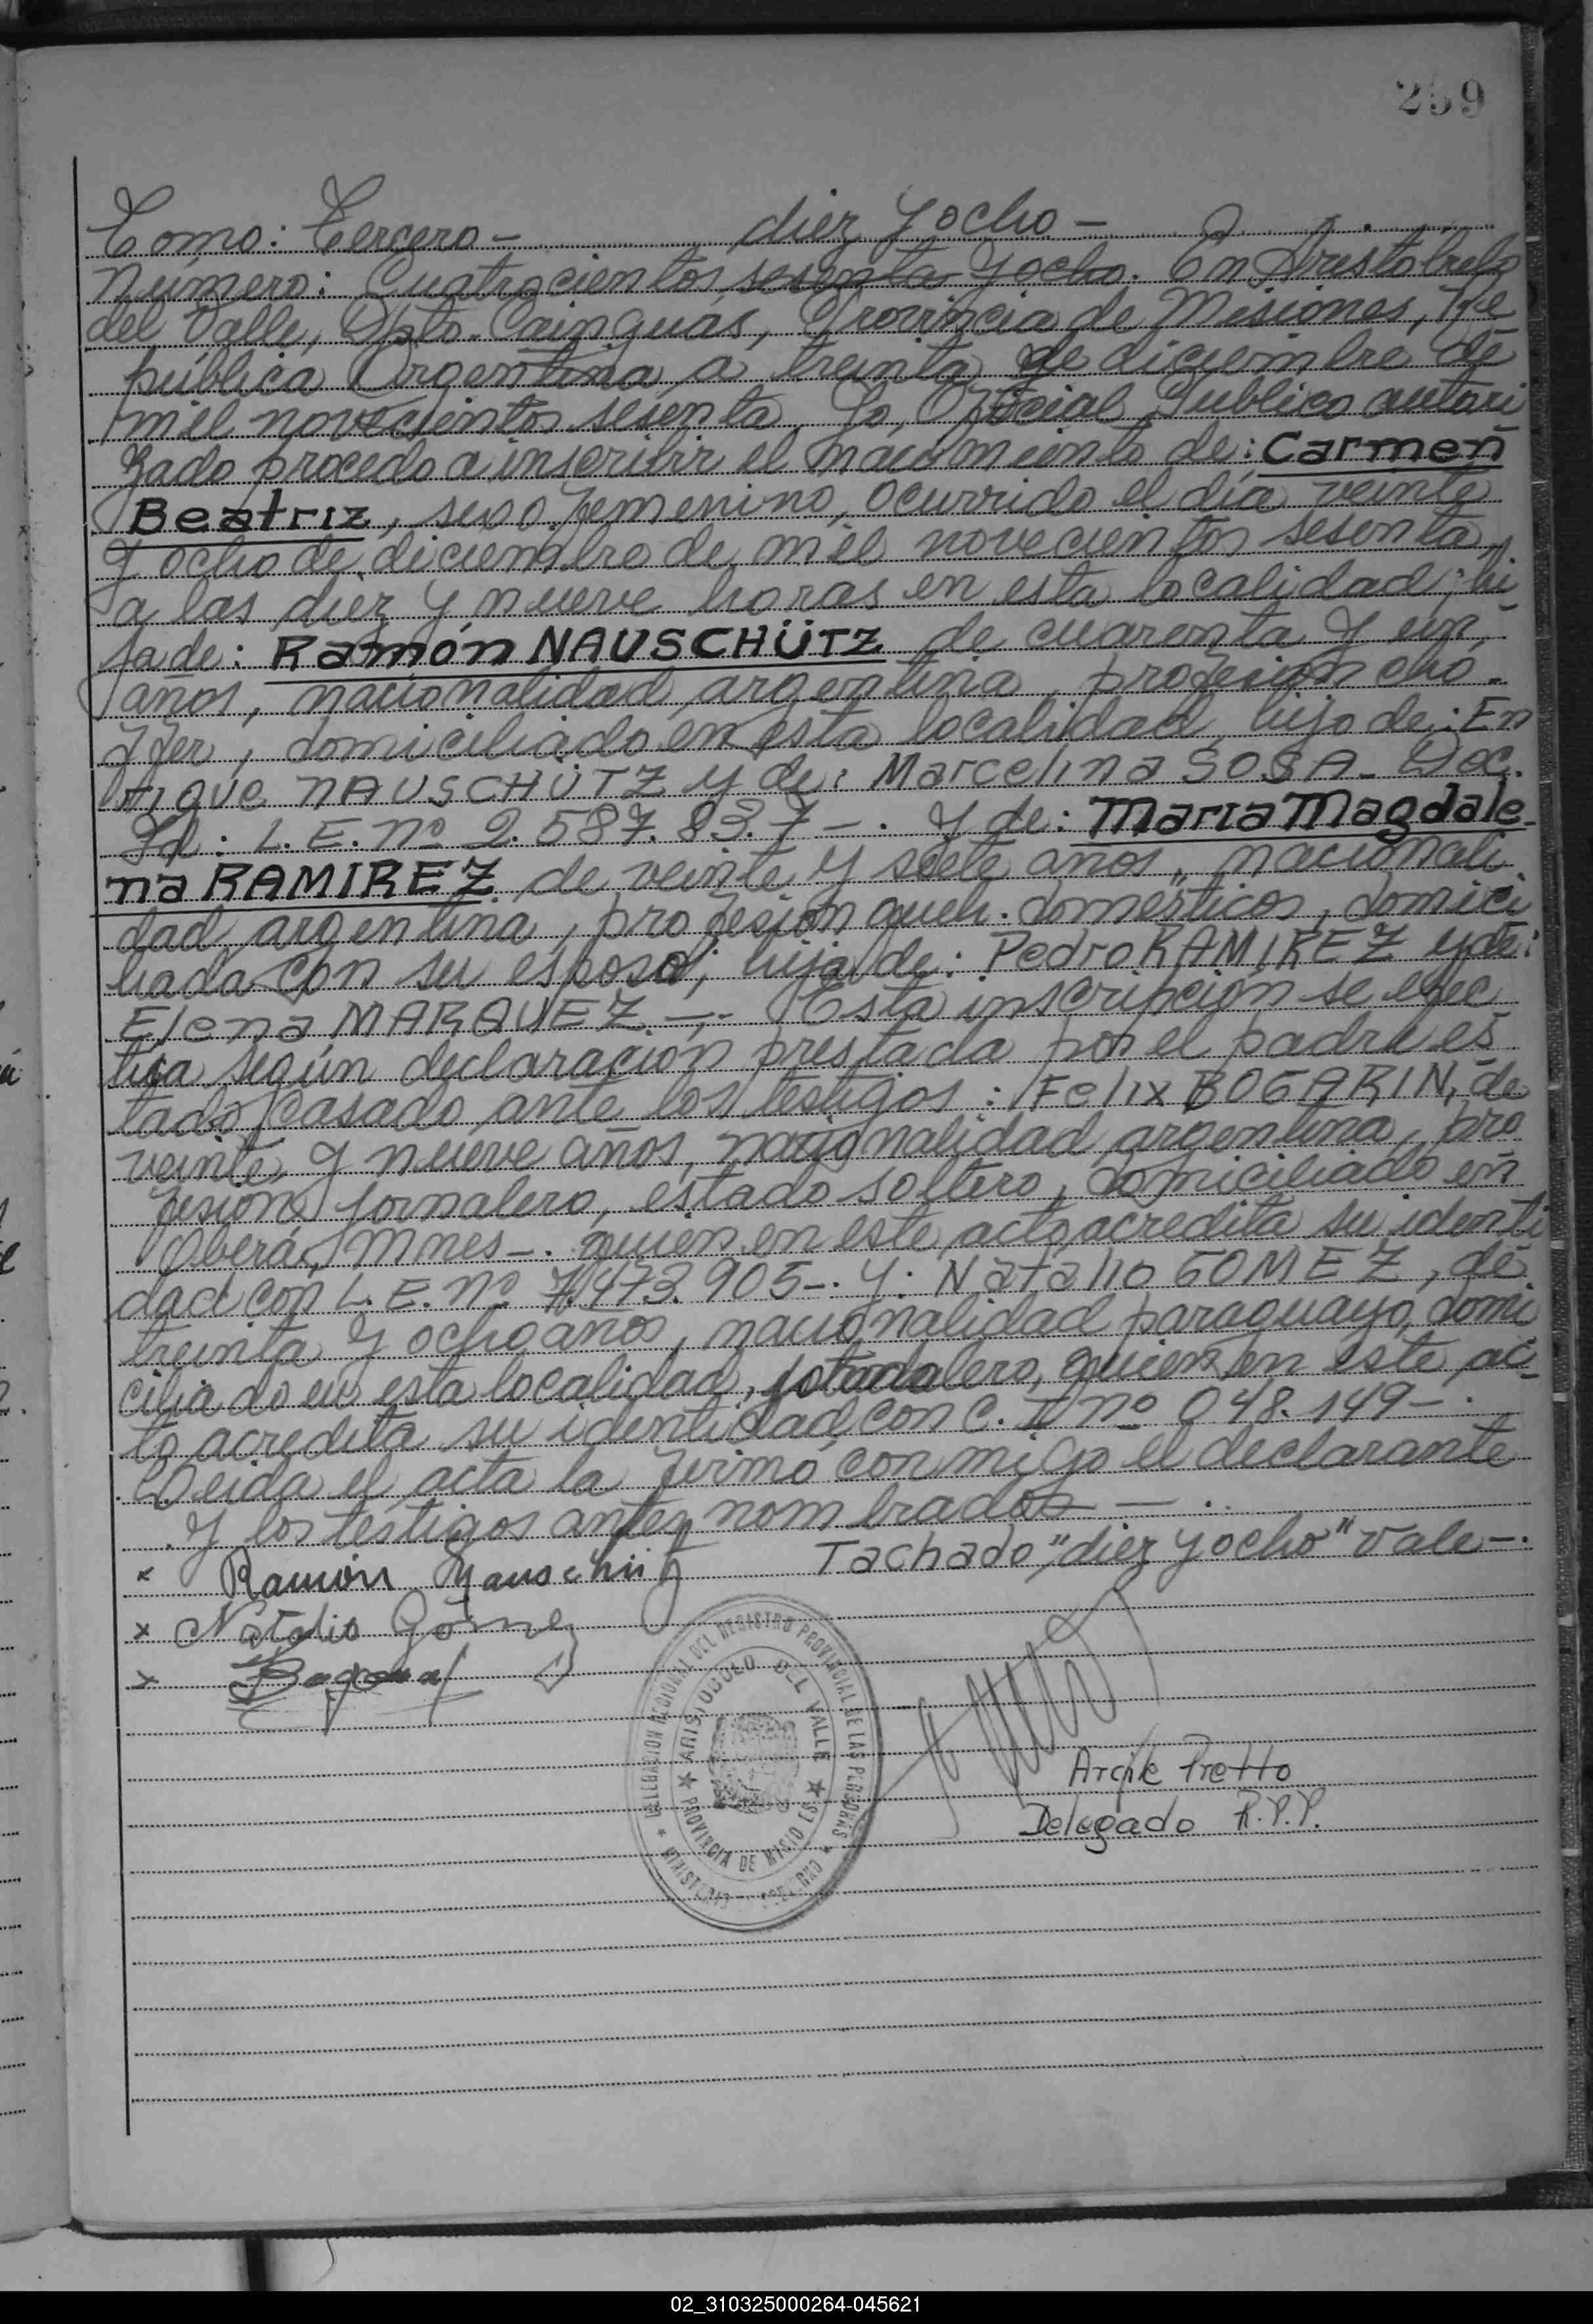 259
Tomo: Tercero - diez y ocho -
Número: Cuatrocientos sesenta y ocho. En Aristóbulo
del Valle, Dpto. Cainguás, Provincia de Misiones, Re
pública Argentina a treinta de diciembre de
mil novecientos sesenta. Yo, Oficial Publico autori
zado procedo a inscribir el nacimiento de: Carmen
Beatriz, sexo femenino, ocurrido el día veinte
y ocho de diciembre de mil novecientos sesenta
a las diez y nueve horas en esta localidad; hi
ja de: Ramón NAUSCHÜTZ de cuarenta y un
años, nacionalidad argentina, profesion cho-
ffer, domiciliado en esta localidad, hijo de: En
rique NAUSCHÜTZ y de: Marcelina SOSA- Doc.
Id: L.E. nº 2.587.83.7-. Y de: María Magdale-
na RAMIREZ de veinte y siete años, nacionali
dad argentina, profesion queh. domésticos, domici
liada con su esposo; hija de: Pedro RAMIREZ y de:
Elena MARQUEZ.-.- Esta inscripción se efec
túa según declaración prestada por el padre es
tado casado ante los testigos: Felix BOGARIN, de
veinte y nueve años, nacionalidad argentina, pro
fesion jornalero, estado soltero, domiciliado en
Oberá, Mnes-. quien en este acto acredita su identi
dad con L.E. nº 7.473.905-. Y: Natalio GOMEZ, de
treinta y ocho años, nacionalidad paraguaya, domi
ciliado en esta localidad, quien en este ac-
to acredita su identidad con C. I nº 048.149-.
Leida el acta la firmó conmigo el declarante
y los testigos antes nombrados - .
Tachado, "diez y ocho" Vale-.
x Ramón Nauschütz
x Natalio Gómez
x
DELEGACION REGIONAL DEL REGISTRO PROVINCIAL DE LAS PERSONAS
ARISTOBULO DEL VALLE
PROVINCIA DE MISIONES
Pretto
Delegado R.P.P.
02_310325000264-045621